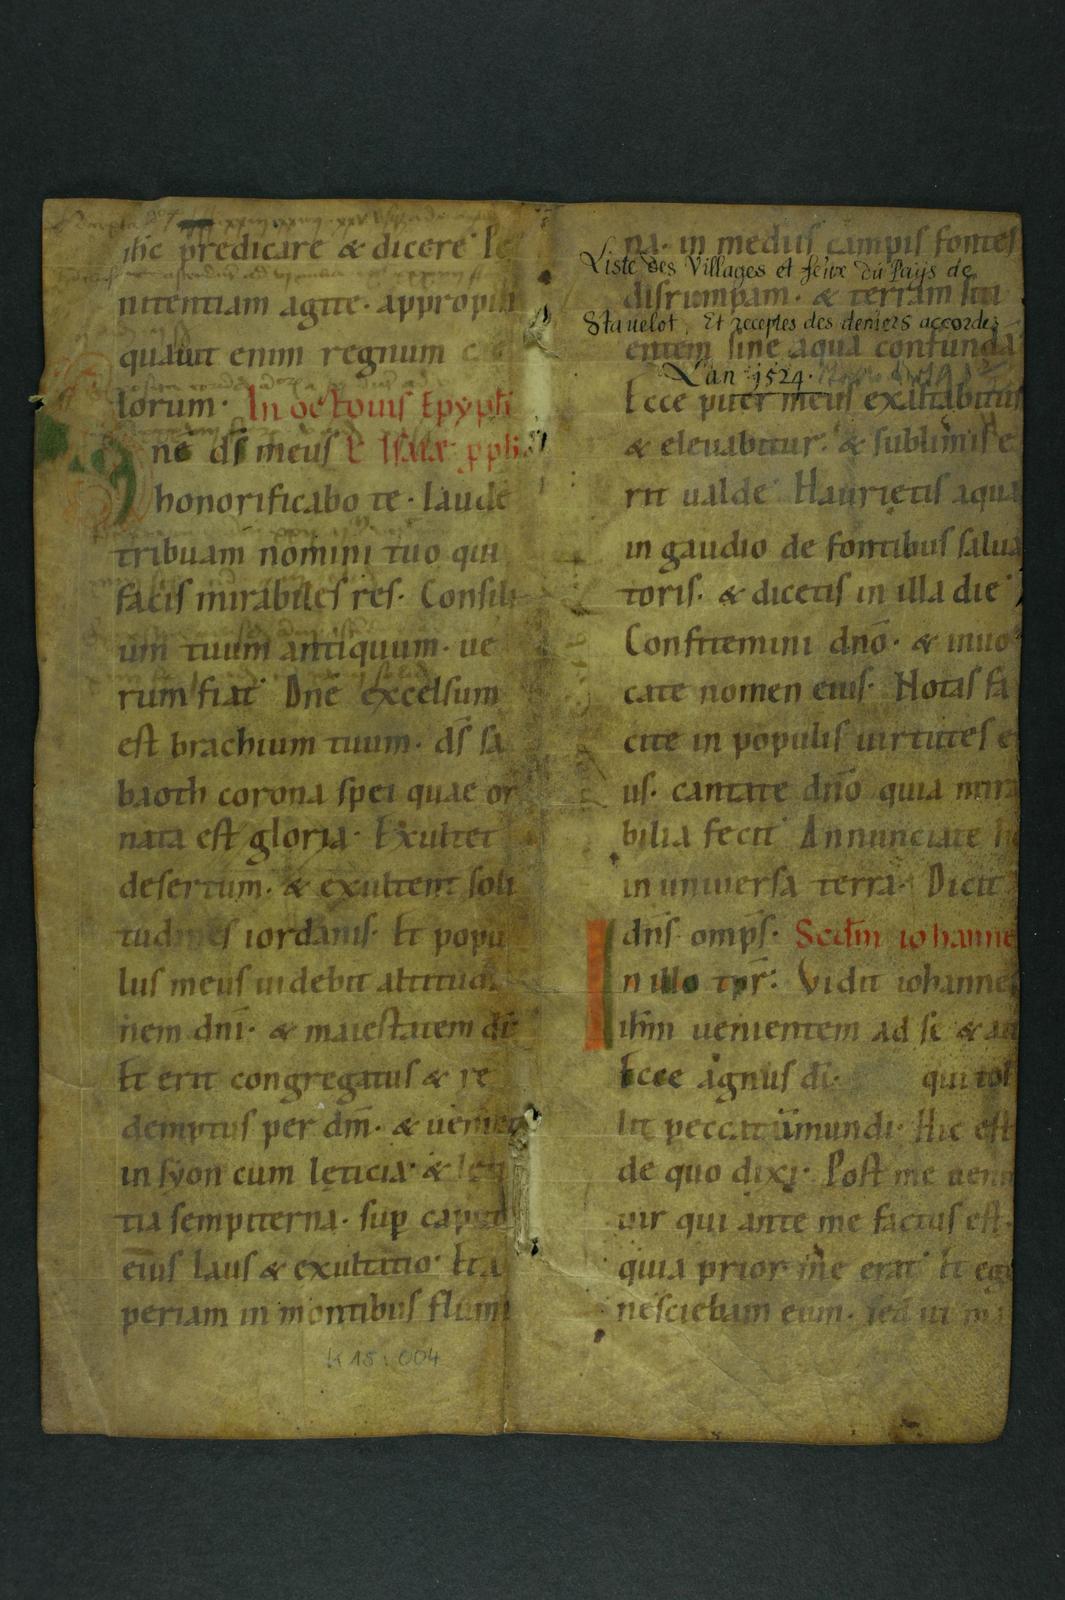 ihc predicare & dicere Pe
nitentiam agite. appropin
quauit enim regnum ce
lorum. In octauis Epyphi
ne ds meus L Isaie pphe
honorificabo te. laude
tribuam nomini tuo qui
facis mirabiles res. Consili
um tuum antiquum. ue
rum fiat Dne excelsum
est brachium tuum. ds sa
baoth corona spei quae or
nata est gloria. Exultet
desertum. & exultent soli
tudines iordanis. Et popu
lus meus uidebit altitudi
nem dni. & maiestatem di
Et erit congregatus & re
demptus per dm. & ueniet
in syon cum leticia. & leti
tia sempiterna. sup caput
eius laus & exultatio. Et a
periam in montibus flumi
K 15:004
na. in mediis campis fontes
Liste des Villages et feux du Pays de
disrumpam. & terram siti
Stauelot, Et receptes des deniers accordez
entem sine aqua confunda
L'an 1524.
Ecce puer meus exaltabitur
& eleuabitur. & sublimis e
rit ualde Haurietis aqua
in gaudio de fontibus salua
toris. & dicetis in illa die
Confitemini dno. & inuo
cate nomen eius. Notas fa
cite in populis uirtutes e
ius. cantate dno quia mira
bilia fecit Annunciate h
in uniuersa terra. Dicit
dns omps. Scdm iohanne
In illo tpr. Vidit iohannes
ihm uenientem ad se & ait
Ecce agnus di. qui tol
lit peccatū mundi. Hic est
de quo dixi. Post me uenit
uir qui ante me factus est.
quia prior me erat Et ego
nesciebam eum. sed ut ma